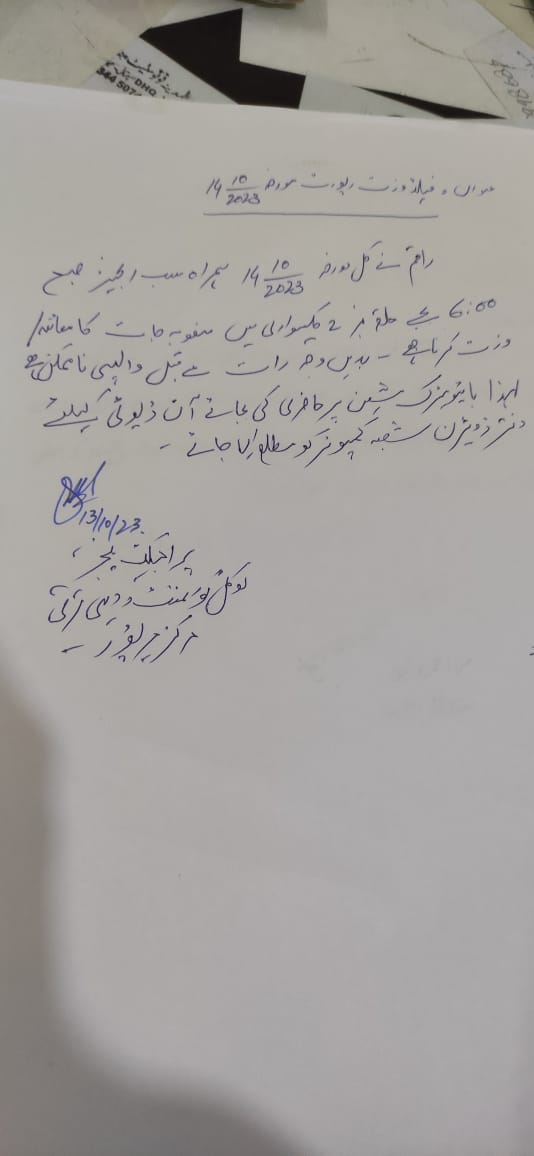 عنوان: فیلڈ وزٹ رپورٹ مورخہ 14 10/2023
راقم نے کل مورخہ 14 10/2023 ہمراہ سب انجینئر صبح
6:00 بجے حلقہ نمبر 2 میں منصوبہ جات کا معائنہ/
وزٹ کرنا ہے ۔ بدیں وجہ رات سے قبل واپسی ناممکن ہے
لہذا بائیومیٹرک مشین پر حاضری کی بجائے آن ڈیوٹی کیلئے
دفتر ڈویژن شعبہ کمپیوٹر کو مطلع کیا جائے ۔
13/10/23.
پراجیکٹ منیجر،
لوکل گورنمنٹ و دیہی ترقی
مرکز میرپور ۔
DHQ
344 507